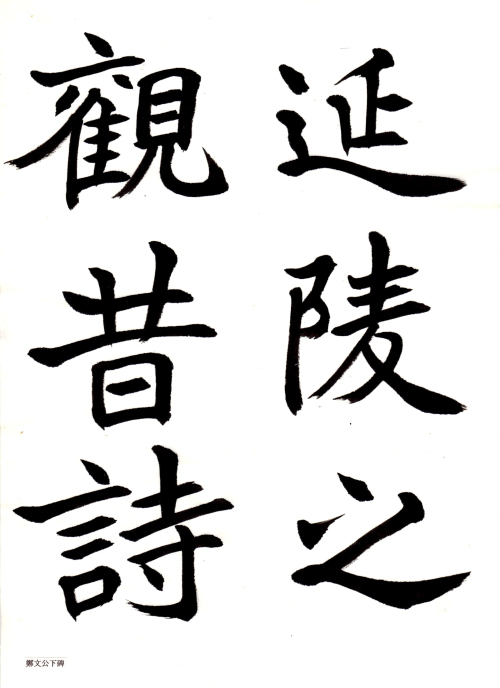 延陵之
觀昔詩
鄭文公下碑